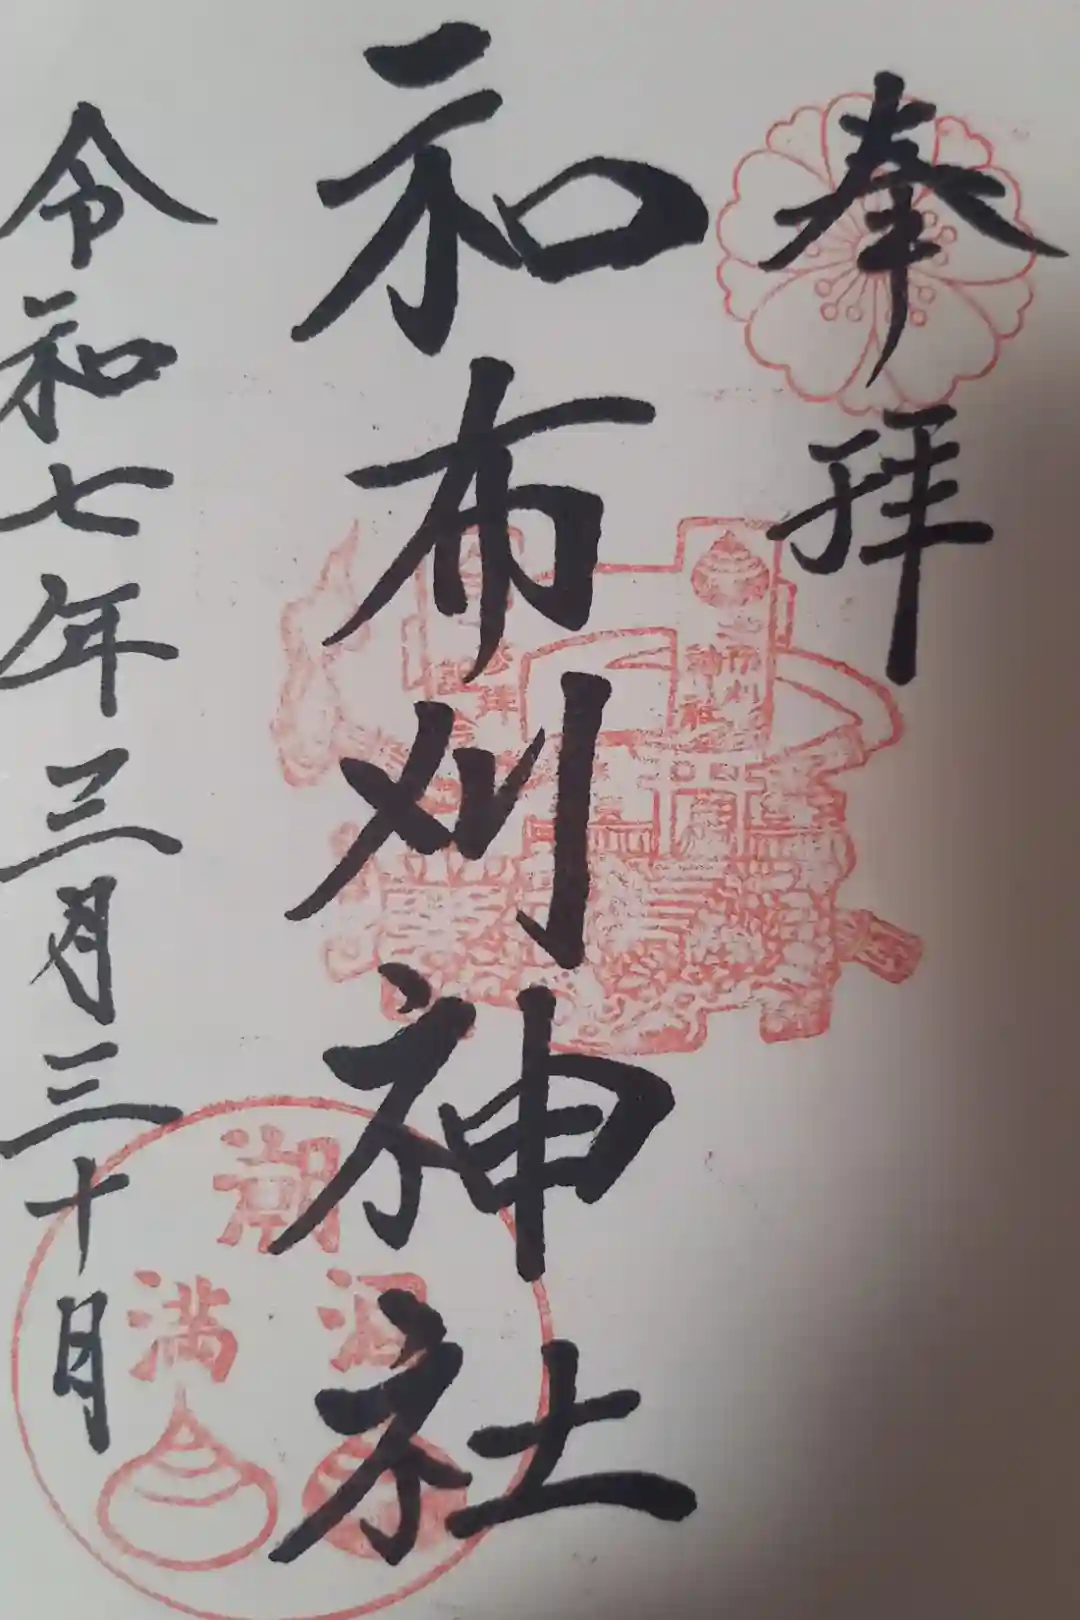 奉拝
和布刈神社
令和七年三月三十日
潮
満
神社